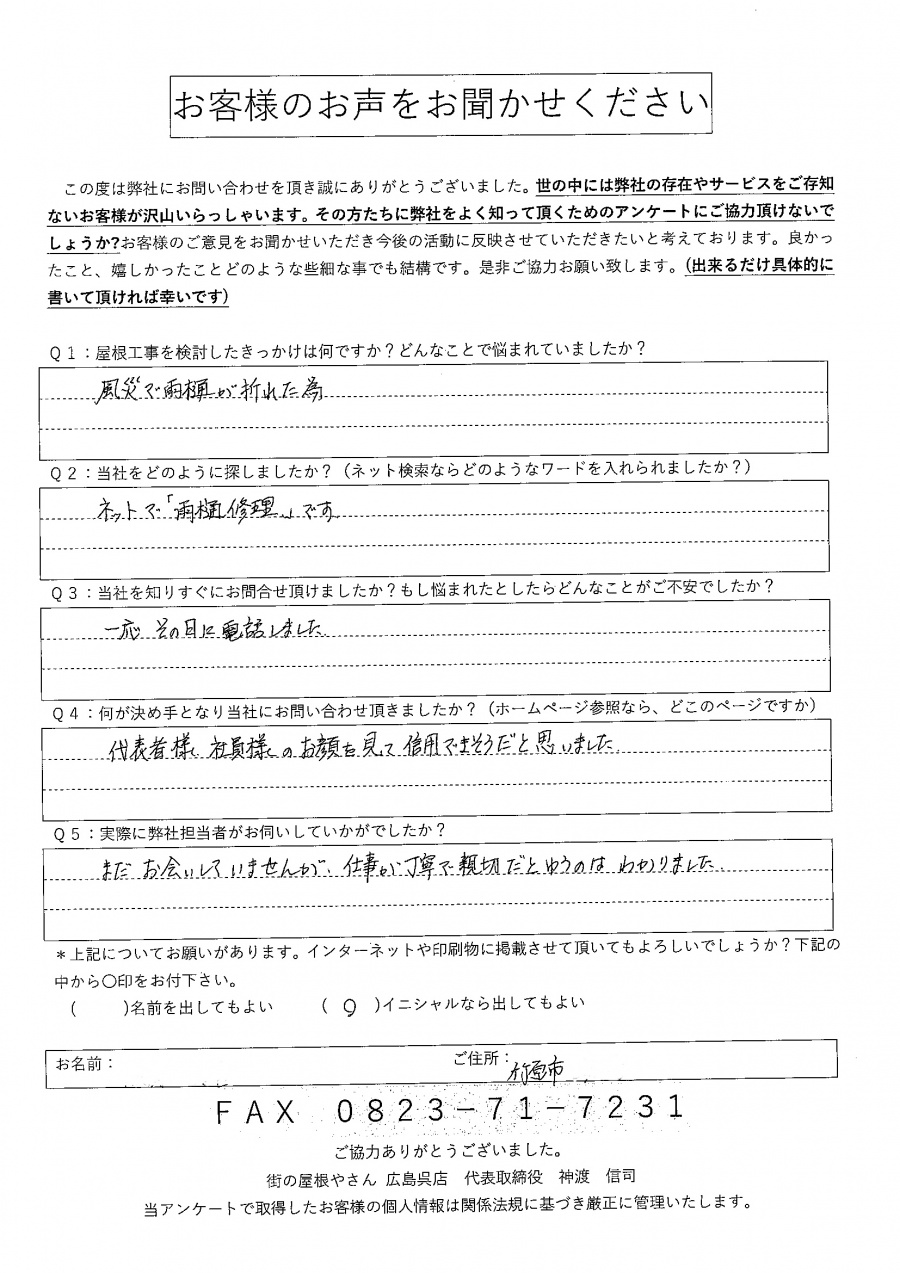 お客様のお声をお聞かせください
この度は弊社にお問い合わせを頂き誠にありがとうございました。世の中には弊社の存在やサービスをご存知
ないお客様が沢山いらっしゃいます。その方たちに弊社をよく知って頂くためのアンケートにご協力頂けないで
しょうか?お客様のご意見をお聞かせいただき今後の活動に反映させていただきたいと考えております。良かっ
たこと、嬉しかったことどのような些細な事でも結構です。是非ご協力お願い致します。(出来るだけ具体的に
書いて頂ければ幸いです)
Q1：屋根工事を検討したきっかけは何ですか？どんなことで悩まれていましたか？
風災で雨樋が折れた為
Q2：当社をどのように探しましたか？（ネット検索ならどのようなワードを入れられましたか？）
ネットで「雨樋修理」です
Q3：当社を知りすぐにお問合せ頂けましたか？もし悩まれたとしたらどんなことがご不安でしたか？
一応 その日に電話しました
Q4：何が決め手となり当社にお問い合わせ頂きましたか？（ホームページ参照なら、どこのページですか）
代表者様、社員様のお顔を見て信用できそうだと思いました
Q5：実際に弊社担当者がお伺いしていかがでしたか？
まだお会いしていませんが、仕事が丁寧で親切だとゆうのはわかりました
＊上記についてお願いがあります。インターネットや印刷物に掲載させて頂いてもよろしいでしょうか？下記の
中から〇印をお付下さい。
（　　）名前を出してもよい　（ ○ ）イニシャルなら出してもよい
お名前：　ご住所：竹原市
FAX 0823-71-7231
ご協力ありがとうございました。
街の屋根やさん 広島呉店　代表取締役　神渡　信司
当アンケートで取得したお客様の個人情報は関係法規に基づき厳正に管理いたします。